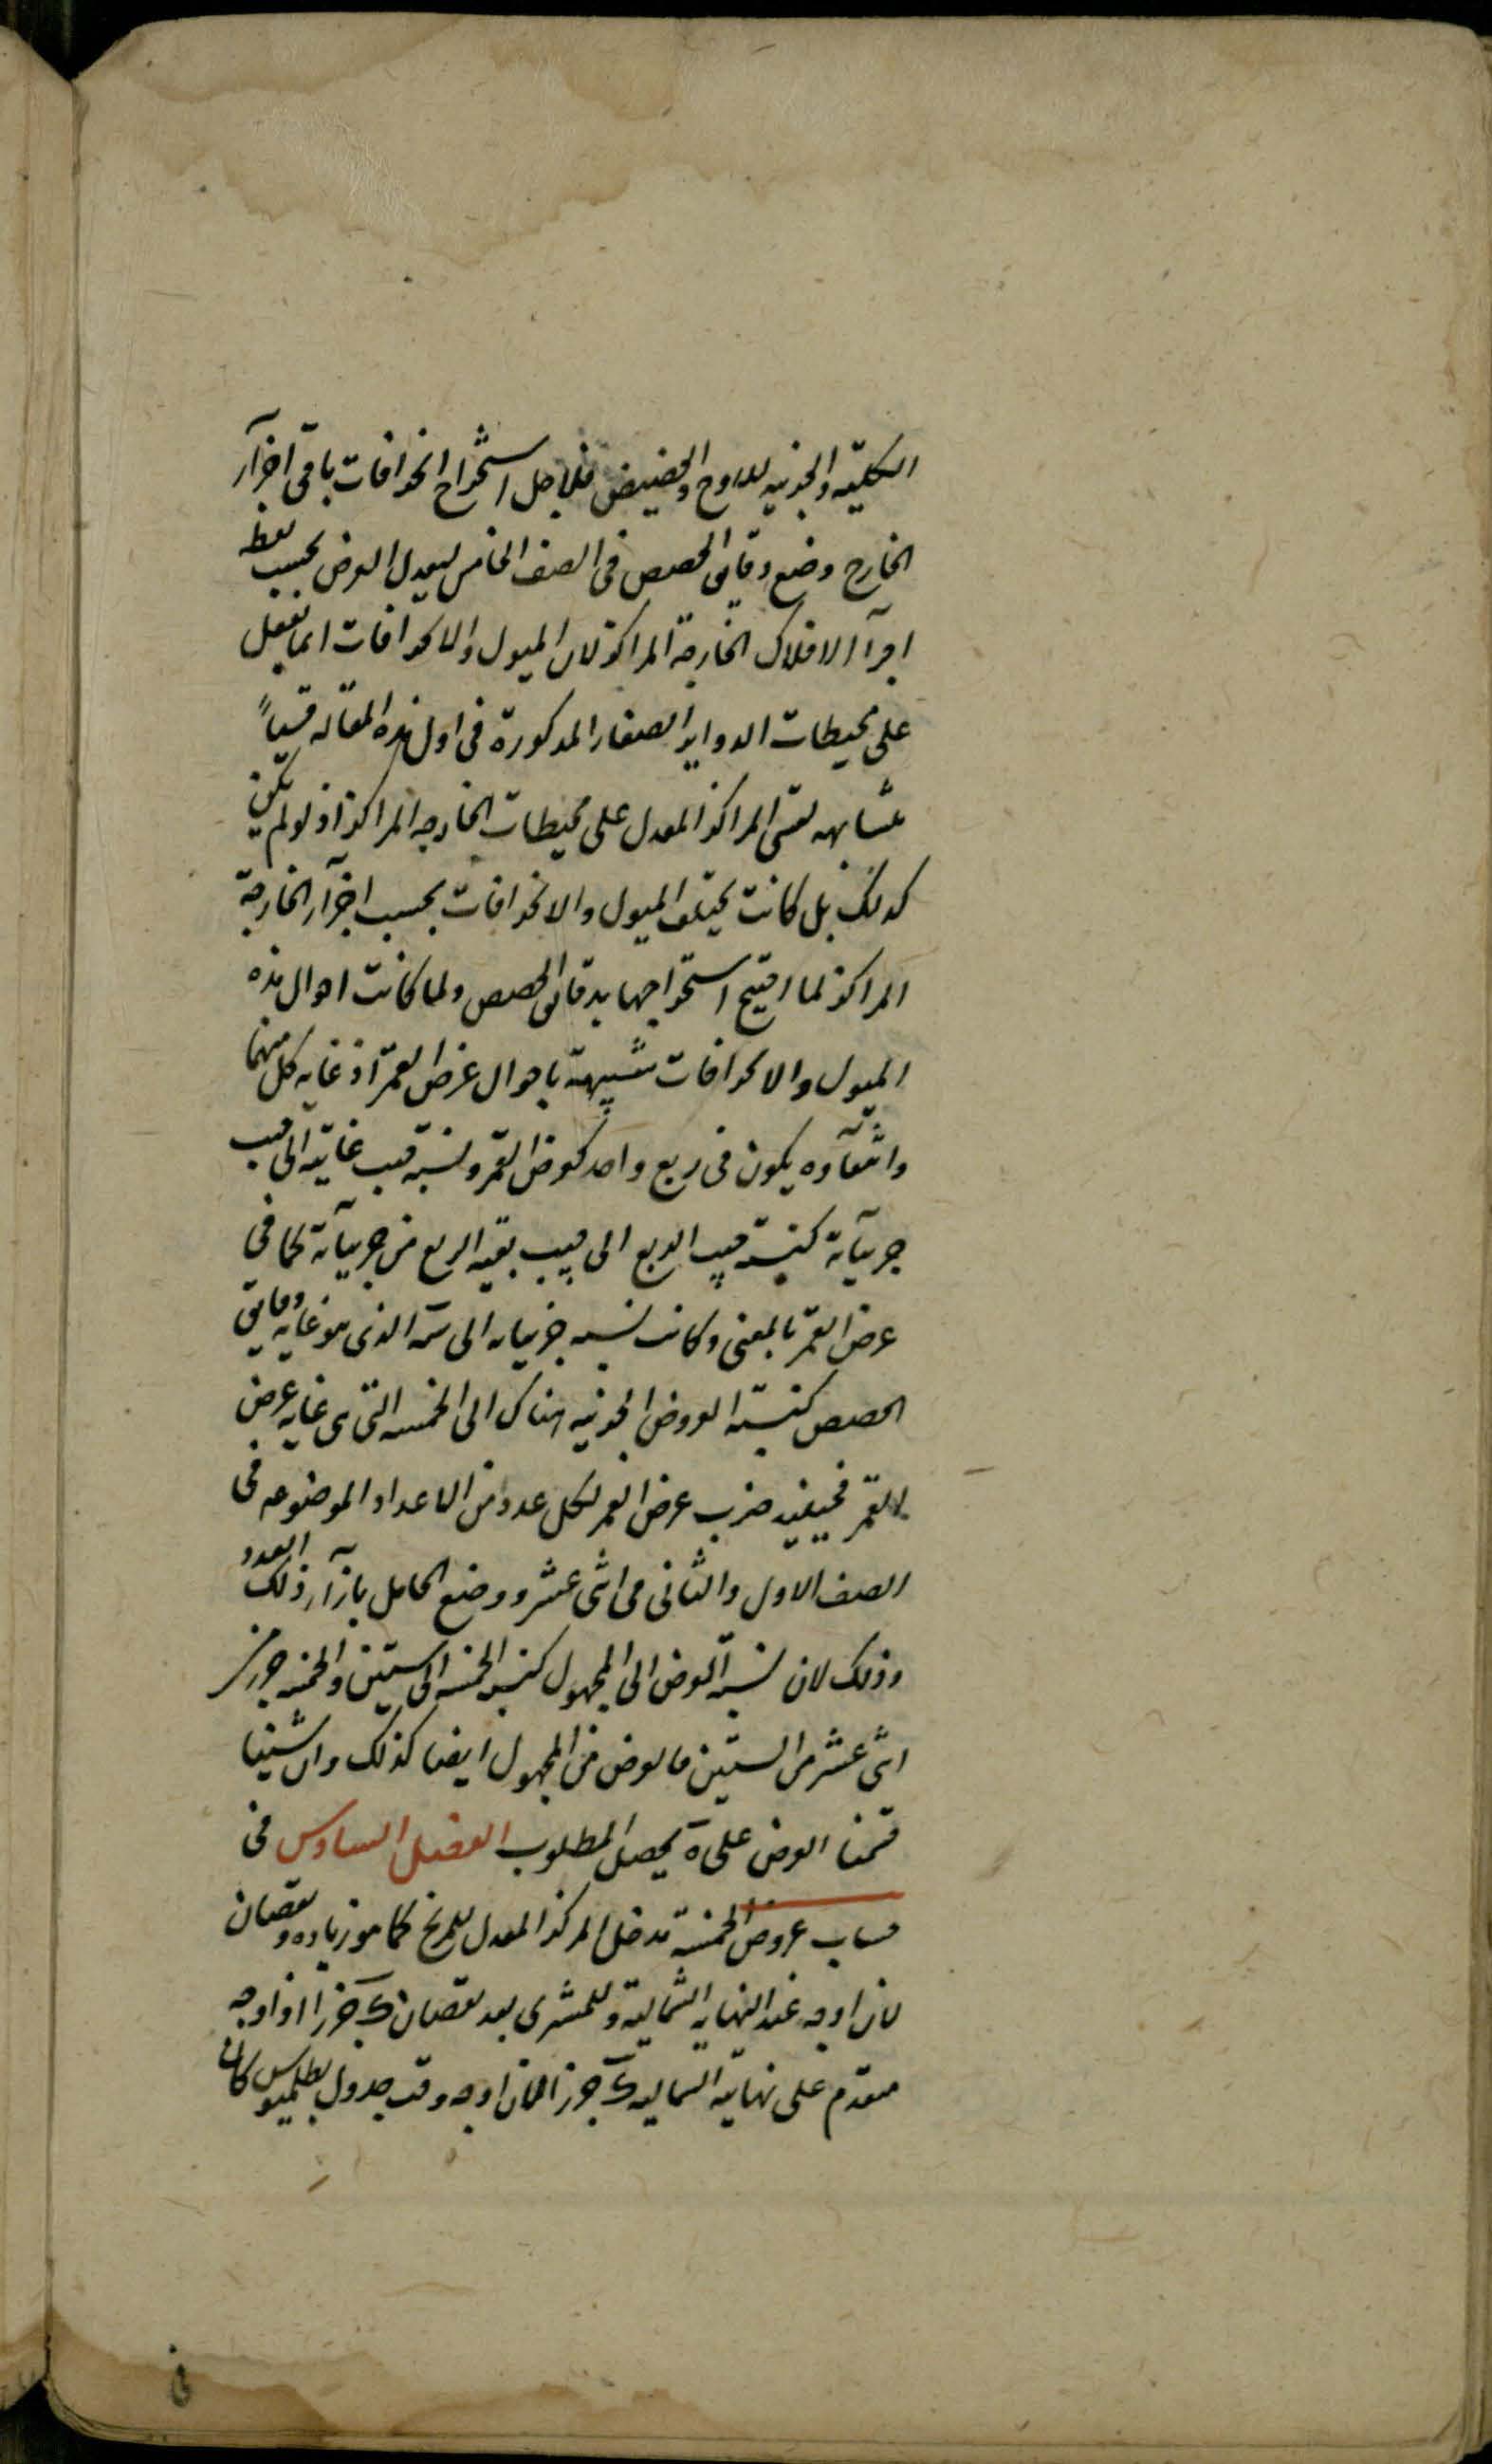 الكلية والجزئية للاوج والحضيض فلاجل استخراج انحرافات باقى اجزآء
الخارج وضع دقايق الحصص فى الصف الخامس ليعدل العرض بحسب
اجزآء الافلاك الخارجة المراكز لان الميول والانحرافات انما تفعل
على محيطات الدواير الصغار المذكورة فى اول هذه المقاله قسياً
متشابهه لقسى المراكز المعدل على محيطات الخارجه المراكز اذ لو لم يكن
كذلك بل كانت يختلف الميول والانحرافات بحسب اجزآء الخارجة
المراكز لما احتيج استخراجها بدقائق الحصص ولما كانت احوال هذه
الميول والانحرافات شبيهة باحوال عرض القمر اذ غايه كل منهما
وانتفآؤه يكون فى ربع واحد كعرض القمر ونسبة جيب غايته الى جيب
جزئيآته كنسبة جيب الربع الى جيب بقيه الربع من جزئيآته كما فى
عرض القمر بالمعنى وكانت نسبه جزئياته الى سَه الذى هو غايه دقايق
الحصص كنسبة العروض الجزئيه هناك الى الخمسه التى هى غايه عرض
القمر فحينئذ ضرب عرض القمر لكل عدد من الاعداد الموضوعه فى
الصف الاول والثانى فى اثنى عشر ووضع الحاصل بازآء ذلك العدد
وذلك لان نسبة العرض الى المجهول كنسبة الخمسه الى ستين والخمسه جزء من
اثنى عشر من الستين فالعرض من المجهول ايضا كذلك وان شئنا
قسمنا العرض على ةَ يحصل المطلوب الفصل السادس فى
حساب عروض الخمسة ندخل المركز المعدل للمريخ كما هو زياده ونقصان
لان اوجه عند النهايه الشمالية وللمشترى بعد نقصان كَ جزءا اذ اوجه
متقدم على نهايته الشماليه كَ جزءا لان اوجه وقت جدول بطلميوس كان
فى